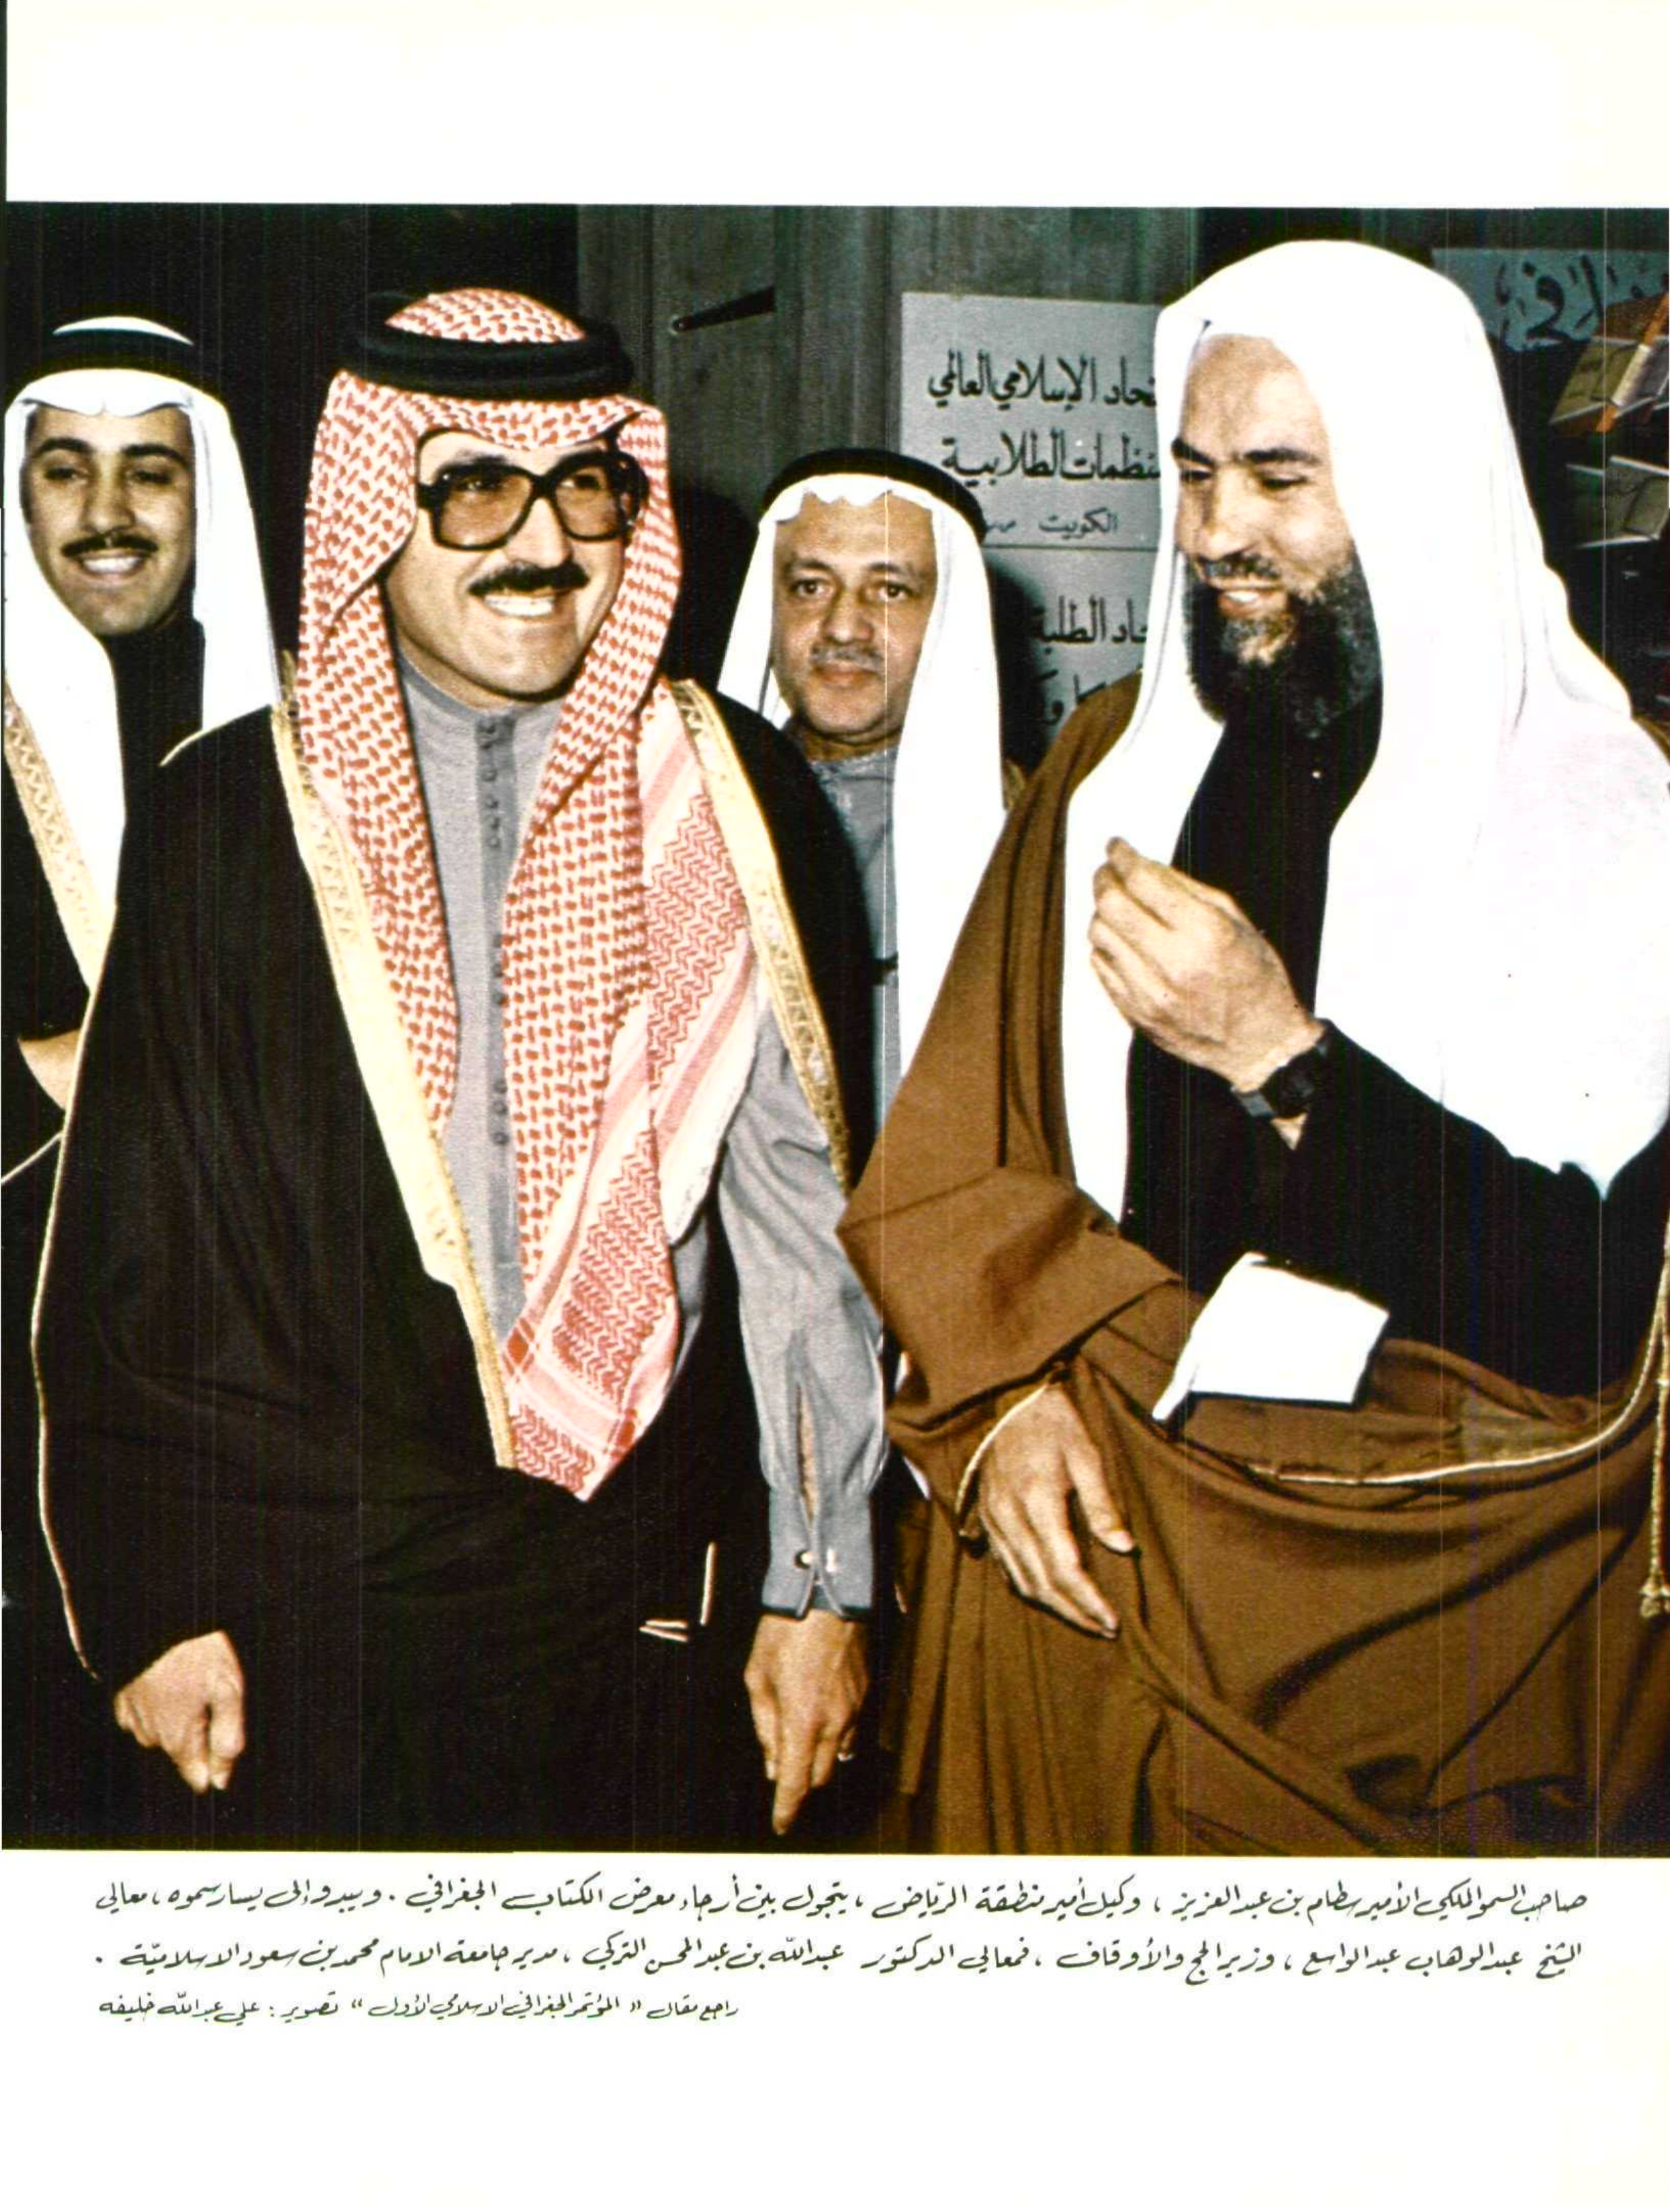 تحاد الإسلامي العالمي
نظمات الطلابية
الكويت
حاد الطلبة
صاحب السمو الملكي الأمير سطام بن عبد العزيز ، وكيل أمير منطقة الرياض ، يتجول بين أرجاء معرض الكتاب الجغرافي . ويبدو إلى يسار سموه ، معالي
الشيخ عبد الوهاب عبد الواسع ، وزير الحج والأوقاف ، فمعالي الدكتور عبدالله بن عبد المحسن التركي ، مدير جامعة الامام محمد بن سعود الاسلاميّة .
راجع مقال " المؤتمر الجغرافي الاسلامي الأول " تصوير : علي عبدالله خليفه